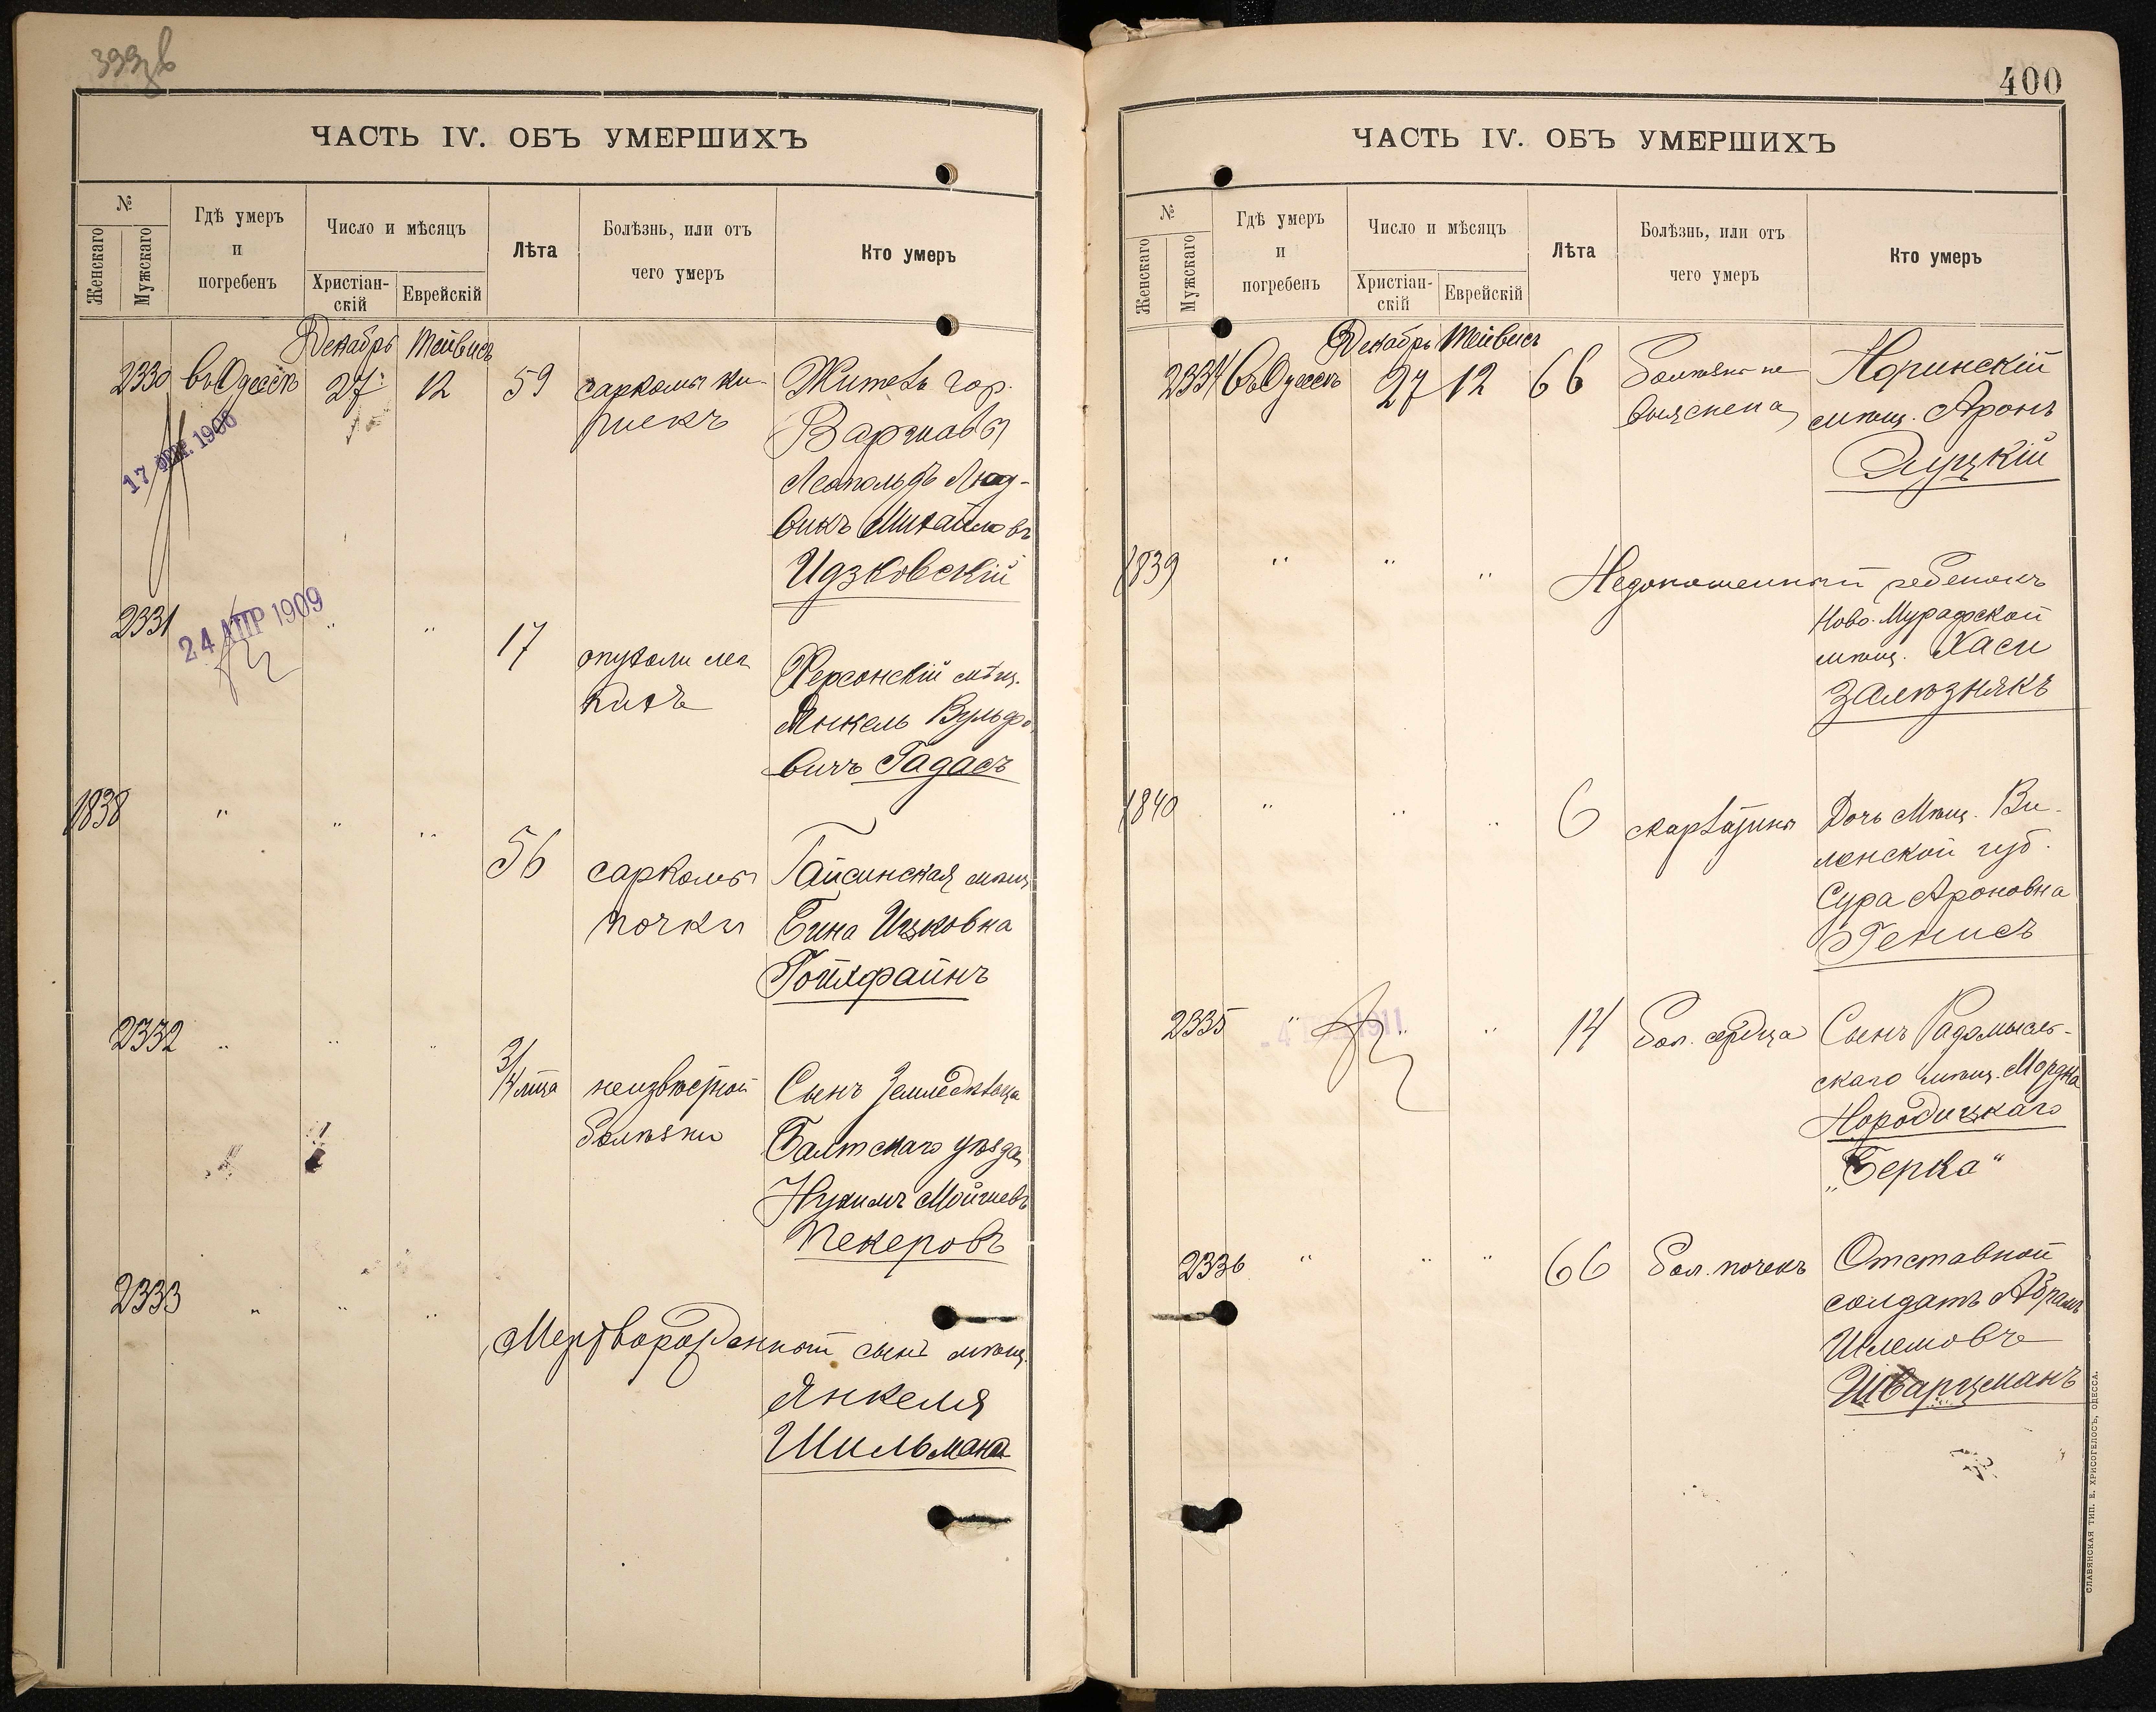 400
ЧАСТЬ IV. ОБЪ УМЕРШИХЪ
№
Женскаго
Мужскаго
Гдѣ умеръ
и
погребенъ
Число и мѣсяцъ
Христіан-
скій
Еврейскій
Лѣта
Болѣзнь, или отъ
чего умеръ
Кто умеръ
Декабрь Тейвисъ
2330 въ Одессѣ 27 12 59 саркомы ки-
шекъ
Житель гор.
Варшавы
Леопольдъ Люд-
викъ Михайловъ
Идзковскій
17 1906
2331
24 АПР 1909
" " 17 опухоли лег
кихъ
Херсонскій мѣщ.
Янкель Вульфо
вичъ Гадасъ
1838 " " " 56 саркомы
почки
Гайсинская мѣщ
Бина Ицковна
Гойхфайнъ
2332 " " " 3/4 лѣта неизвѣстной
болѣзни
Сынъ Земледѣльца
Балтскаго уѣзда
Нухимъ Мойшевъ
Пекеровъ
2333 " " "
Мертворожденный сынъ мѣщ.
Янкеля
Шильмана
ЧАСТЬ IV. ОБЪ УМЕРШИХЪ
№
Женскаго
Мужскаго
Гдѣ умеръ
и
погребенъ
Число и мѣсяцъ
Христіан-
скій
Еврейскій
Лѣта
Болѣзнь, или отъ
чего умеръ
Кто умеръ
Декабрь Тейвисъ
2334 Въ Одессѣ 27 12 66 Болѣзнь не
выяснена
Норинскій
мѣщ. Аронъ
Слуцкій
1839 " " "
Недоношенный ребенокъ
Ново-Мурафской
мѣщ. Хаси
Залѣзнякъ
1840 " " " 6 скарлатины
Дочь Мѣщ. Ви-
ленской губ.
Сура Ароновна
Генисъ
2335 " " " 14 Бол. сердца
1911
Сынъ Радомысль-
скаго мѣщ. Мордка
Народицкаго
„Берка"
2336 " " " 66 Бол. почекъ
Отставной
солдатъ Абрамъ
Шлемовъ
Шварцманъ
СЛАВЯНСКАЯ ТИП. Е. ХРИСОГЕЛОСЪ, ОДЕССА.